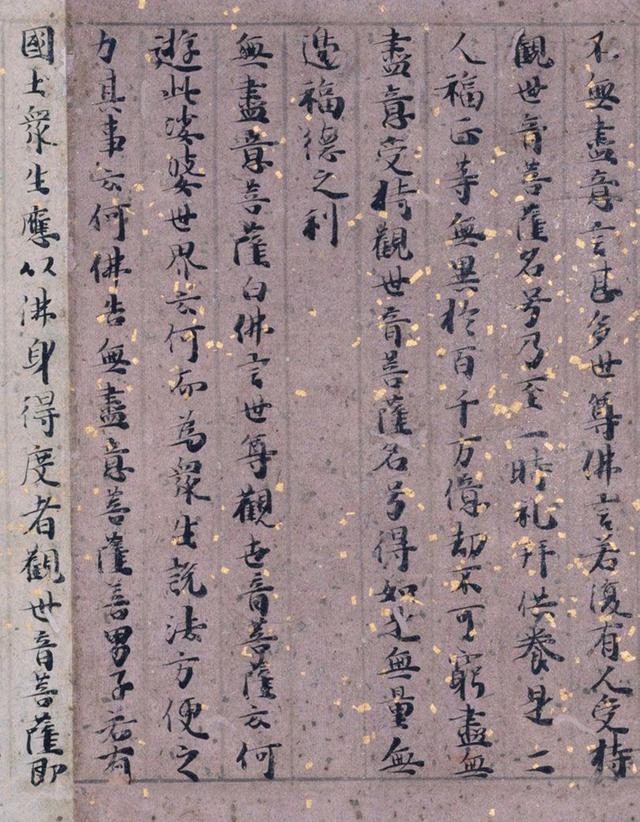 不無盡意言甚多世尊佛言若復有人受持
觀世音菩薩名号乃至一時礼拜供養是二
人福正等無異於百千万億劫不可窮盡無
盡意受持觀世音菩薩名号得如是無量無
邊福德之利
無盡意菩薩白佛言世尊觀世音菩薩云何
遊此娑婆世界云何而為衆生說法方便之
力其事云何佛告無盡意菩薩善男子若有
國土衆生應以佛身得度者觀世音菩薩即